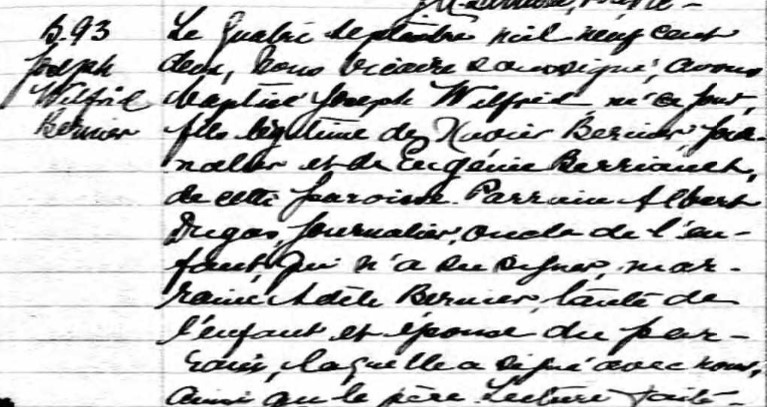 B.93
Joseph
Wilfrid
Bernier
Le quatre septembre mil neuf cent
deux, Nous vicaire soussigné, avons
baptisé Joseph Wilfrid né ce jour,
fils légitime de Xavier Bernier, jour-
nalier et de Eugénie
de cette paroisse. Parrain Albert
Dugas, journalier, oncle de l'en-
fant, qui n'a su signer, mar-
raine Adèle Bernier, tante de
l'enfant et épouse du par-
rain, laquelle a signé avec nous,
ainsi que le père. Lecture faite.